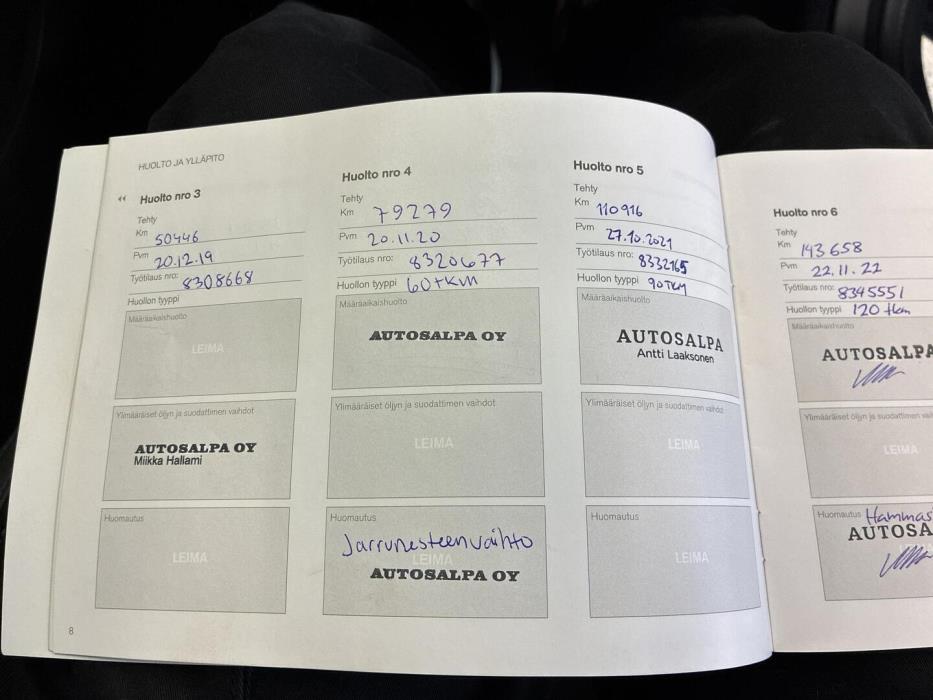 HUOLTO JA YLLÄPITO
« Huolto nro 3
Tehty
Km 50446
Pvm 20.12.19
Työtilaus nro: 8308668
Huollon tyyppi
Määräaikaishuolto
LEIMA
Ylimääräiset öljyn ja suodattimen vaihdot
AUTOSALPA OY
Miikka Hallami
Huomautus
LEIMA
8
Huolto nro 4
Tehty
Km 79279
Pvm 20.11.20
Työtilaus nro: 8320677
Huollon tyyppi 60tkm
Määräaikaishuolto
AUTOSALPA OY
Ylimääräiset öljyn ja suodattimen vaihdot
LEIMA
Huomautus
Jarrunesteenvaihto
LEIMA
AUTOSALPA OY
Huolto nro 5
Tehty
Km 110916
Pvm 27.10.2021
Työtilaus nro: 8332165
Huollon tyyppi 90TKM
Määräaikaishuolto
AUTOSALPA
Antti Laaksonen
Ylimääräiset öljyn ja suodattimen vaihdot
LEIMA
Huomautus
LEIMA
Huolto nro 6
Tehty
Km 143658
Pvm 22.11.22
Työtilaus nro: 8345551
Huollon tyyppi 120 tkm
Määräaikaishuolto
AUTOSALPA
Ylimääräiset öljyn ja suodattimen
LEIMA
Huomautus Hammas
AUTOSA